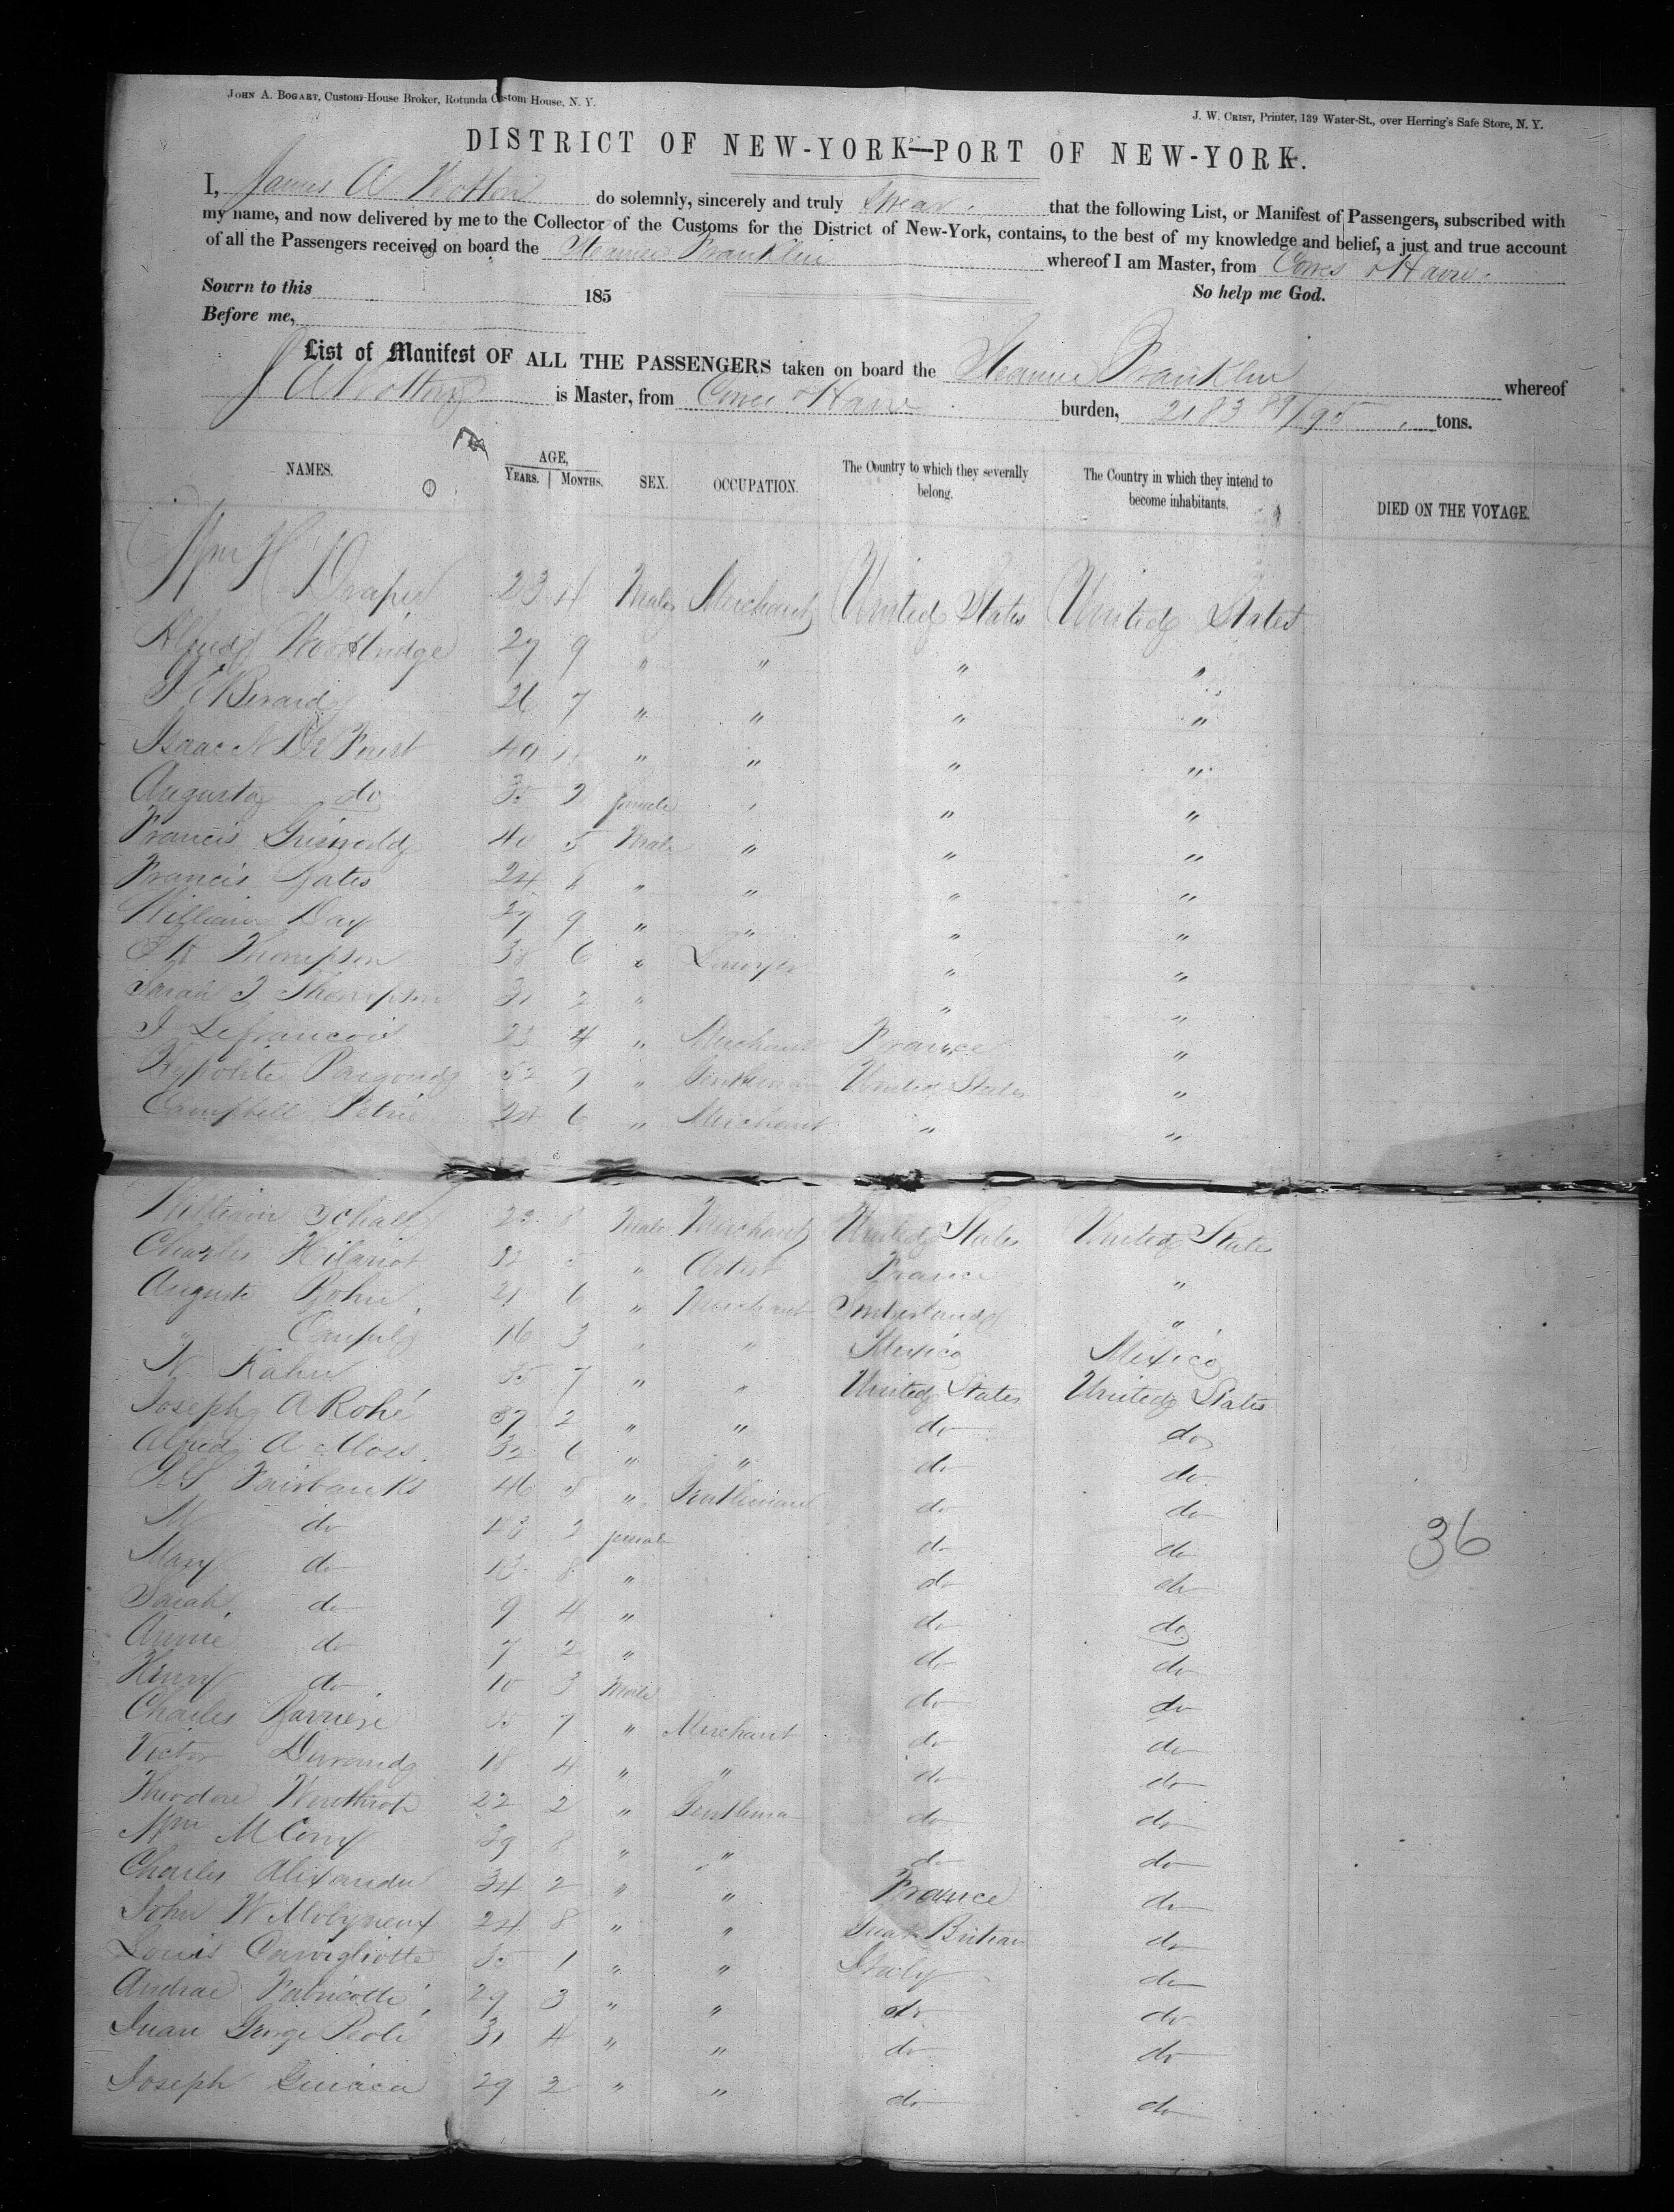 JOHN A. BOGART, Custom House Broker, Rotunda Custom House, N. Y.
J. W. CRIST, Printer, 139 Water-St., over Herring's Safe Store, N. Y.
DISTRICT OF NEW-YORK—PORT OF NEW-YORK.
I, James A Wotton do solemnly, sincerely and truly swear that the following List, or Manifest of Passengers, subscribed with
my name, and now delivered by me to the Collector of the Customs for the District of New-York, contains, to the best of my knowledge and belief, a just and true account
of all the Passengers received on board the Steamer Franklin whereof I am Master, from Cowes & Havre.
Sowrn to this 185 So help me God.
Before me,
List of Manifest OF ALL THE PASSENGERS taken on board the Steamer Franklin whereof
J A Wotton is Master, from Cowes & Havre burden, 2183 89/95 tons.
NAMES. AGE, YEARS. MONTHS. SEX. OCCUPATION. The Country to which they severally belong. The Country in which they intend to become inhabitants. DIED ON THE VOYAGE.
Wm H Draper 23 4 Male Merchant United States United States
Alfred Woodbridge 27 9 " " " "
Berard 26 7 " " " "
Isaac N De Forest 40 " " " "
Augusta do 35 2 female " "
Francis Griswold 40 5 Male " " "
Francis Yates 24 " " " "
William Day 27 9 " " " "
Thompson 38 6 " Lawyer " "
Sarah J Thompson 31 2 " " "
J Lefrancois 23 4 " Merchant France "
Hypolite Pargoud 52 7 " Gentleman United States "
Campbell Petrie 24 6 " Merchant " "
William Schall 23 8 Male Merchant United States United States
Charles Hilariot 32 5 " Artist France "
Auguste John 21 6 " Merchant Switzerland "
" 16 3 " " Mexico Mexico
N Kahn 35 7 " " United States United States
Joseph A Rohé 37 2 " " do do
Alfred A Moss 32 6 " " do do
Fairbanks 46 5 " Gentleman do do
M do 43 2 female do do
Mary do 13 8 " do do
Sarah do 9 4 " do do
Annie do 7 2 " do do
Henry do 10 3 Male do do
Charles 35 7 " Merchant do do
Victor Durand 18 4 " " do do
Theodore Winthrop 22 2 " Gentleman do do
Wm M Corry 39 8 " " do do
Charles Alexander 34 2 " " France do
John W Molyneux 24 8 " " Great Britain do
Louis 35 1 " " Italy do
Andrae Fabricotti 29 3 " " do do
Juan George Peoli 31 4 " " do do
Joseph 29 2 " " do do
36